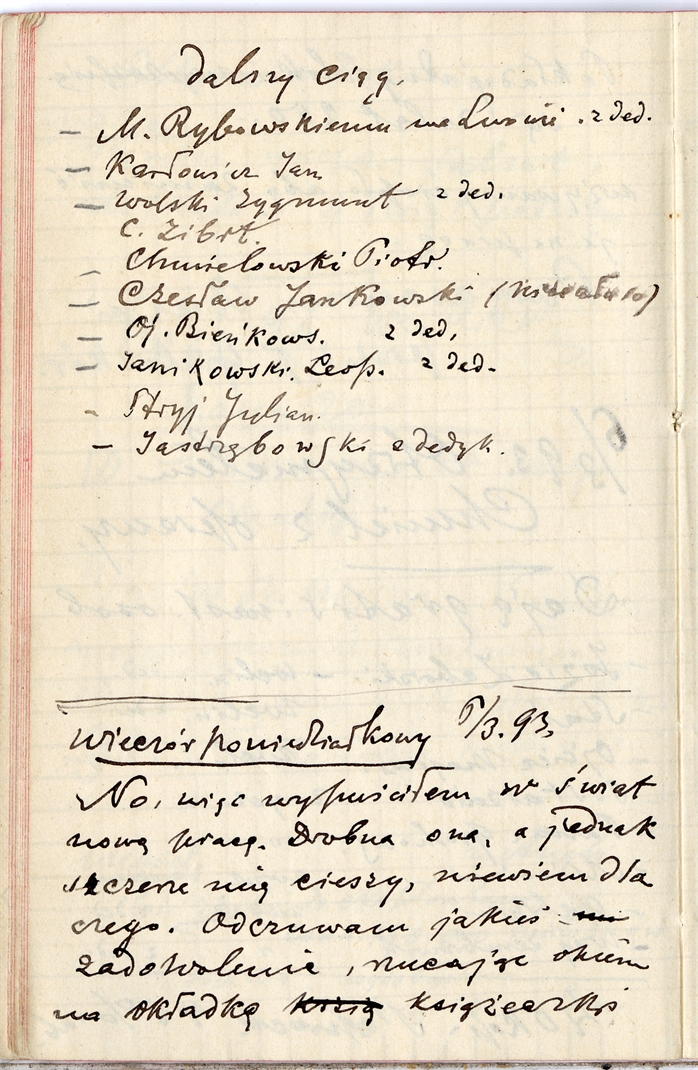 Dalszy ciąg.
– M. Rybowskiemu we Lwowie . z ded.
– Karłowicz Jan
– Wolski Zygmunt z ded.
C. Zibrt.
– Chmielowski Piotr.
– Czesław Jankowski
– Of. Bieńkows. z ded.
– Janikowski. Leop. z ded.
– Stryj Julian.
– Jastrzębowski z dedyk.
Wieczór poniedziałkowy 6/3. 93.
No, więc wypuściłem w świat
nową pracę. Drobna ona, a jednak
szczerze mię cieszy, niewiem dla
czego. Odczuwam jakieś
zadowolenie, rzucając okiem
na okładkę książeczki